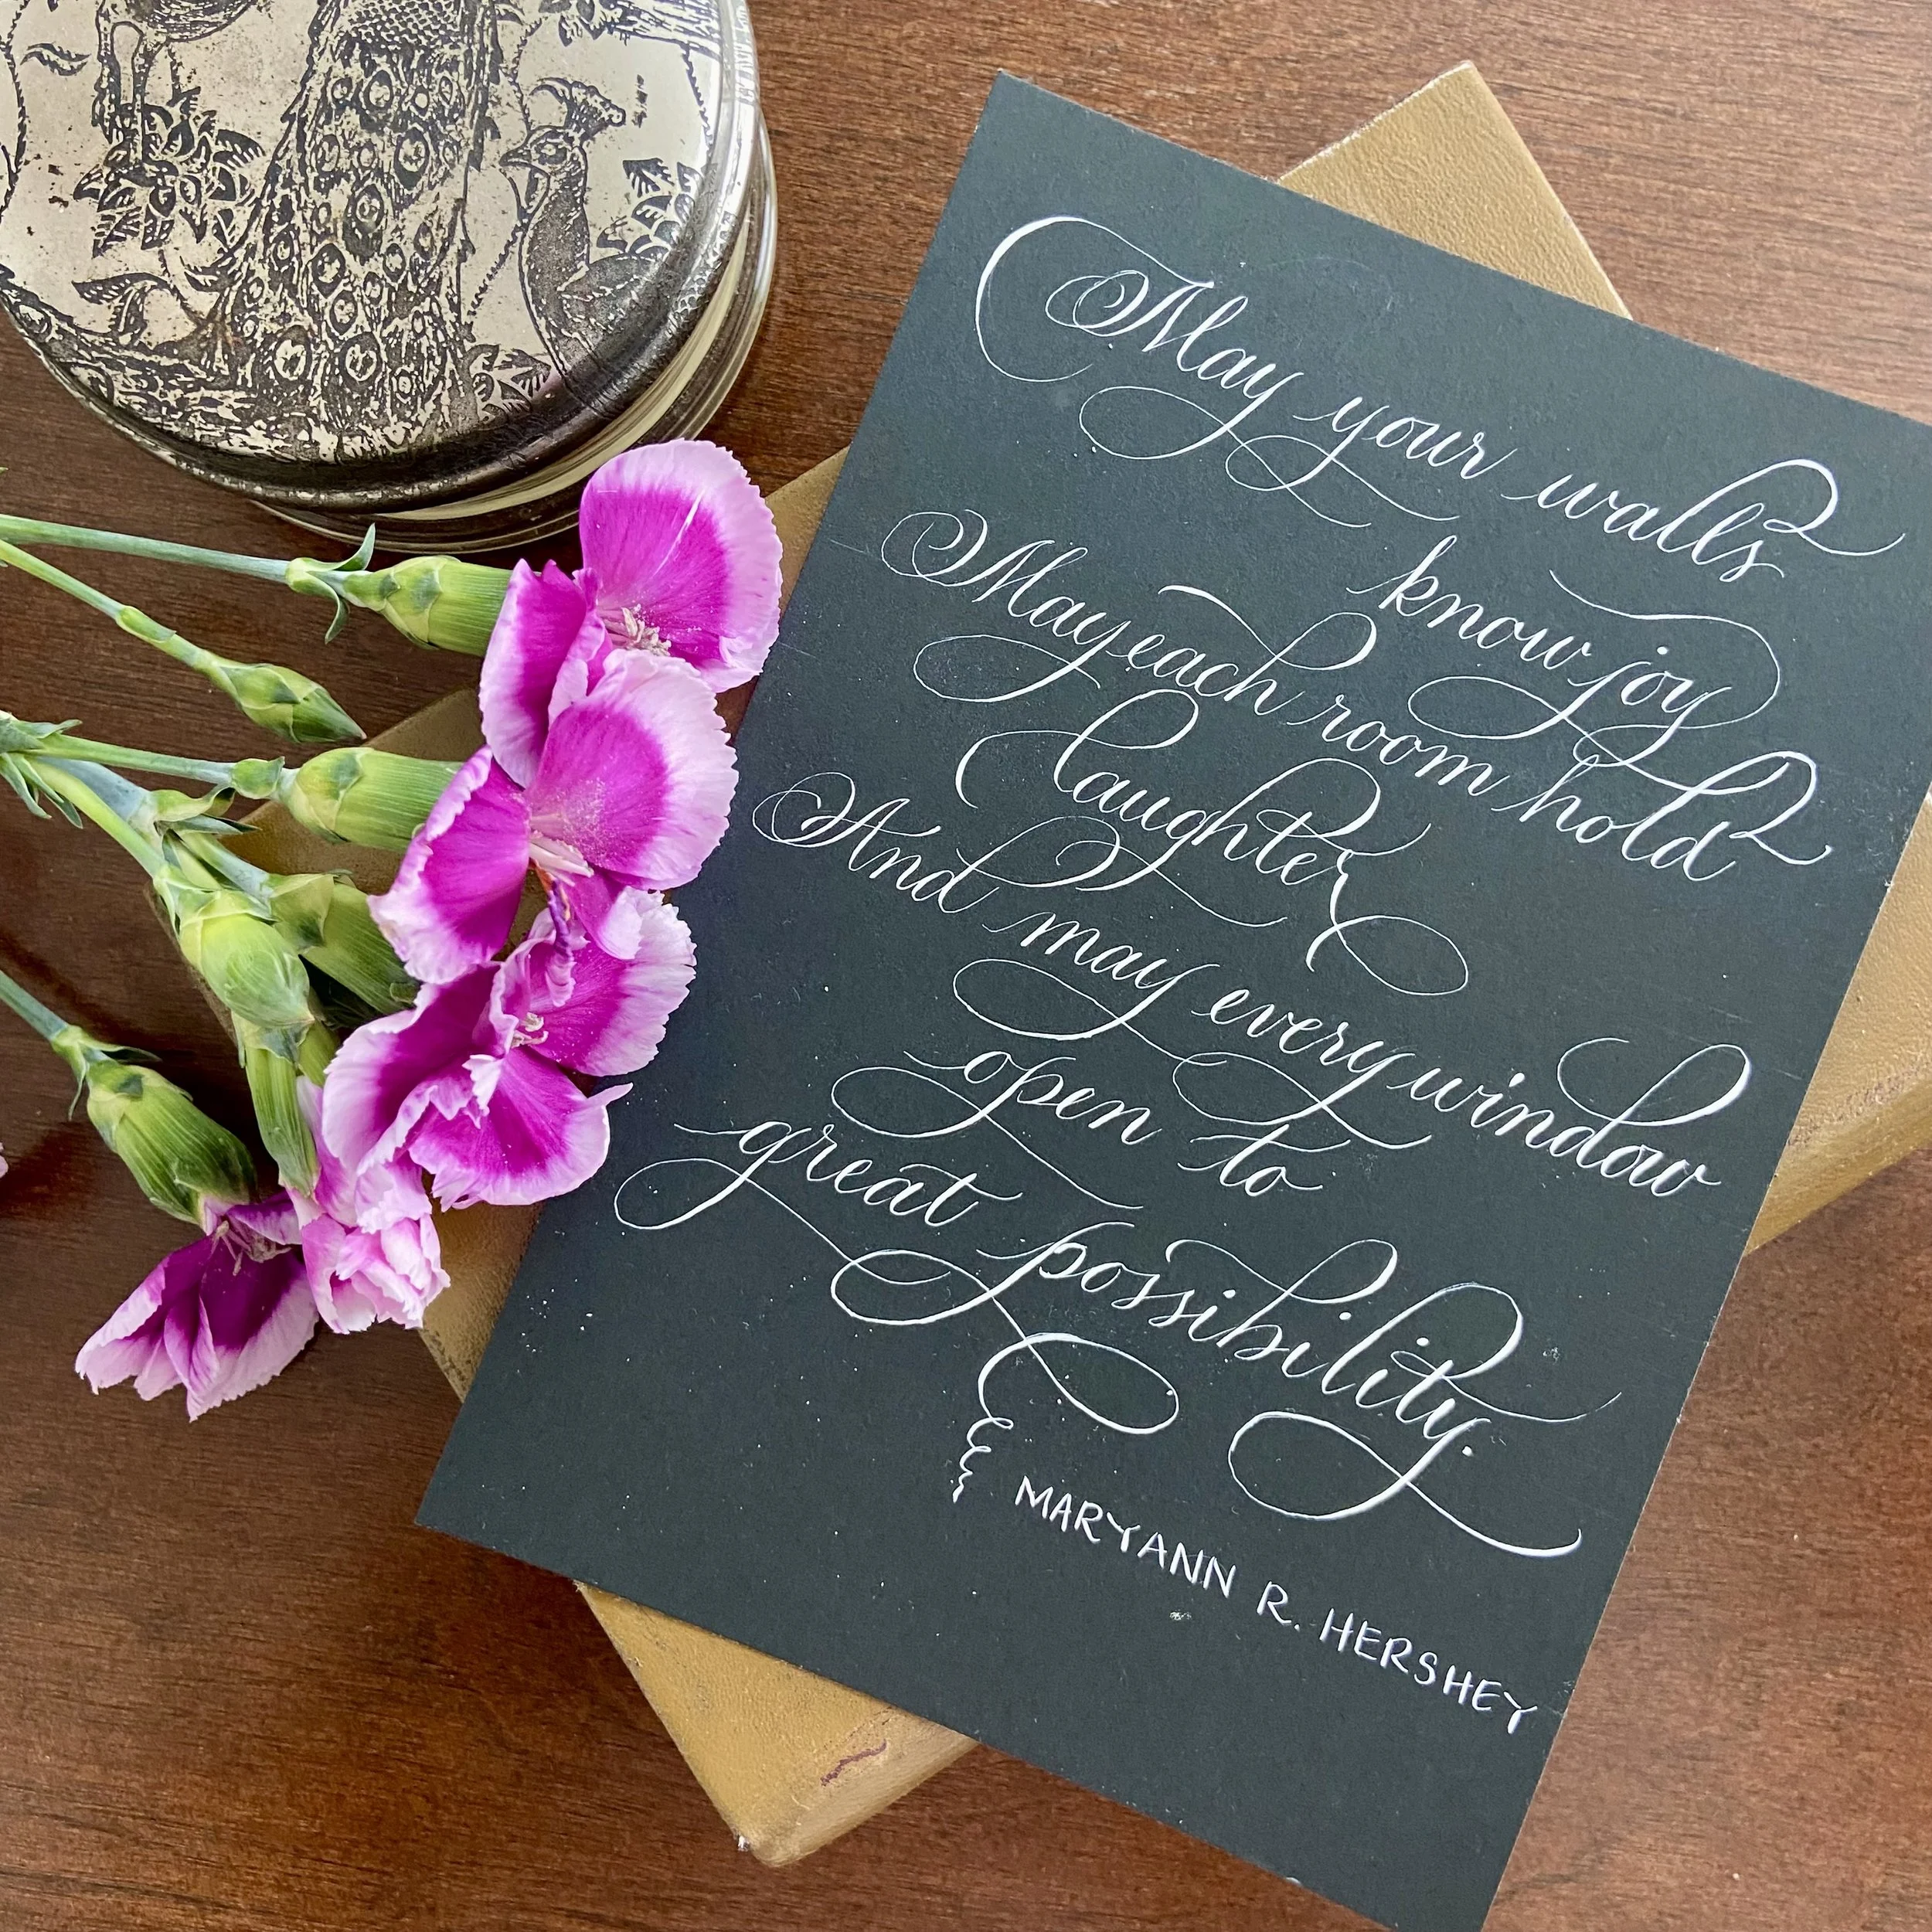 May your walls
know joy
May each room hold
laughter
And may every window
open to
great possibility.
MARYANN R. HERSHEY